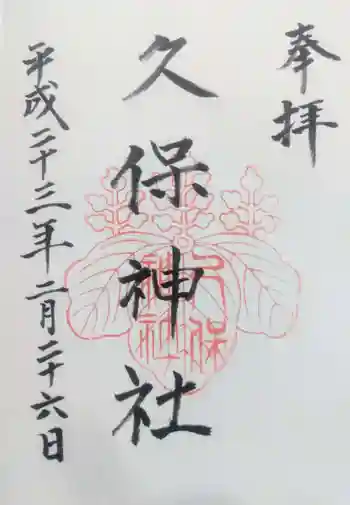 奉拝
久保神社
平成二十三年二月二十六日
久保
神社